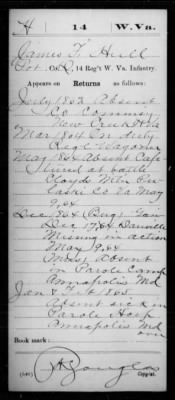 H 14 W.Va.
James T. Hull
Co. 14 Reg't W. Va. Infantry.
Appears on
Returns as follows:
July 1863 Absent
New Creek
Mar 1864 On duty
Regt Wagoner
May 1864 Absent Cap
tured at battle
Cloyds Mtn Pu
laski Co Va May
9, 64
Dec 1864
Dec 17, 64
Missing in action
May 9, 64
Absent
in Parole Camp
Annapolis Md
Jan & Feb 1865
Absent sick in
Parole Hosp
Annapolis Md
over
Book mark:
(546)
Copyist.